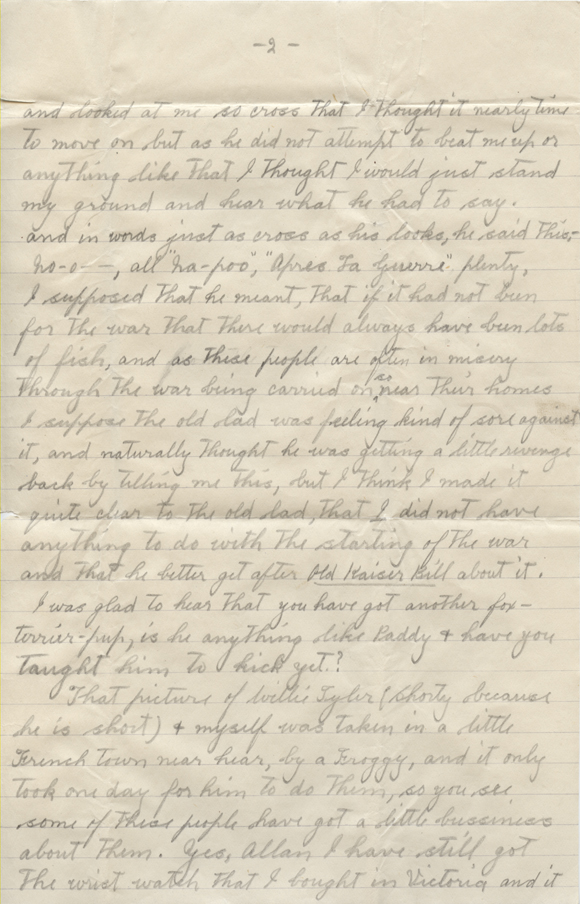 -2-
and looked at me so cross that I thought it nearly time
to move on but as he did not attempt to beat me up or
anything like that I thought I would just stand
my ground and hear what he had to say.
and in words just as cross as his looks, he said this,-
No-o--, all "Na-poo", "Apres La Guerre" plenty,
I supposed that he meant, that if it had not been
for the war that there would always have been lots
of fish, and as these people are often in misery
through the war being carried on so near their homes
I suppose the old lad was feeling kind of sore against
it, and naturally thought he was getting a little revenge
back by telling me this, but I think I made it
quite clear to the old lad, that I did not have
anything to do with the starting of the war
and that he better get after Old Kaiser Bill about it.
I was glad to hear that you have got another fox-
terrier-pup, is he anything like Paddy & have you
taught him to kick yet.?
That picture of Willie Tyler (Shorty because
he is short) & myself was taken in a little
French town near hear, by a Froggy, and it only
took one day for him to do them, so you see
some of these people have got a little bussiness
about them. Yes, Allan I have still got
the wrist watch that I bought in Victoria and it